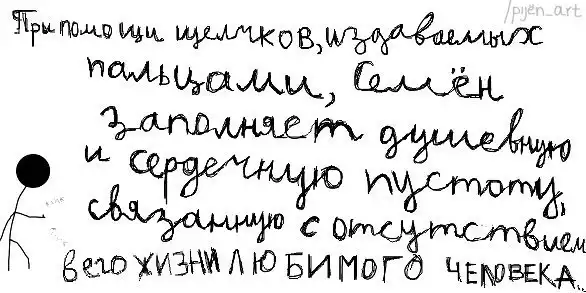 /pyen_art
При помощи щелчков, издаваемых
пальцами, Семён
заполняет душевную
и сердечную пустоту,
связанную с отсутствием
в его ЖИЗНИ ЛЮБИМОГО ЧЕЛОВЕКА..